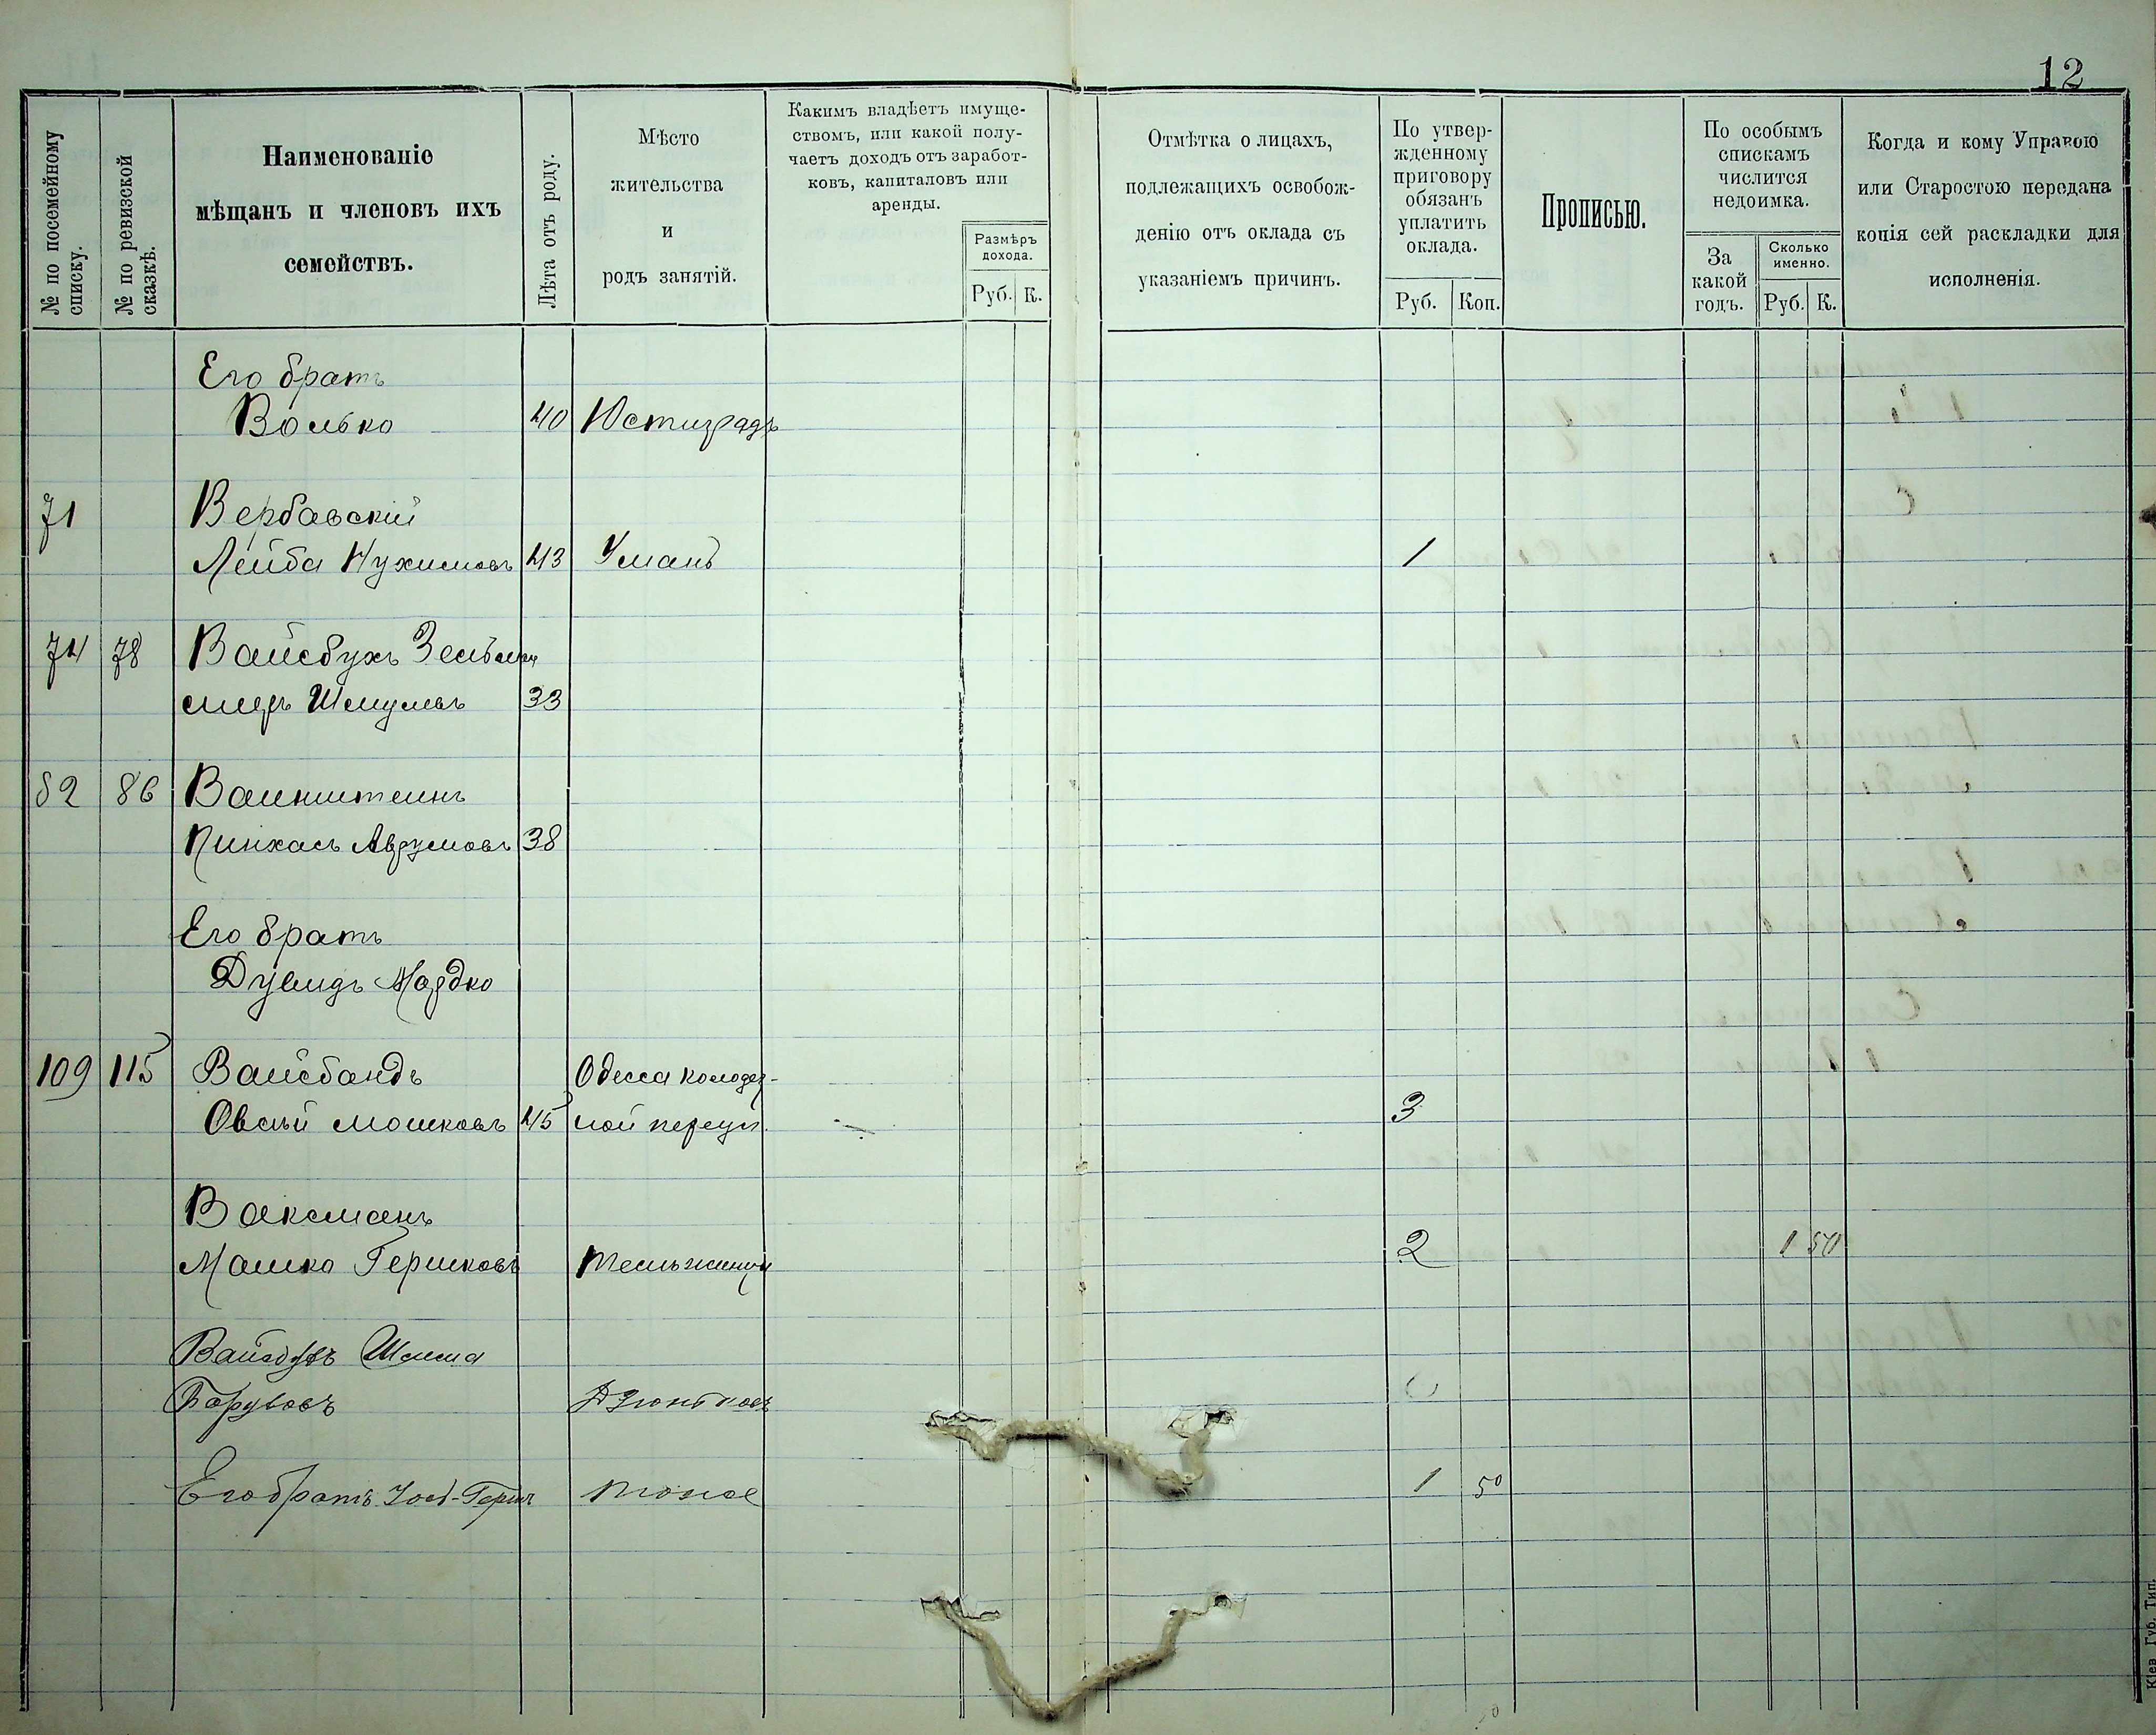 12
№ по посемейному списку.
№ по ревизской сказкѣ.
Наименованіе
мѣщанъ и членовъ ихъ
семействъ.
Лѣта отъ роду.
Мѣсто
жительства
и
родъ занятій.
Какимъ владѣетъ имуще-
ствомъ, или какой полу-
чаетъ доходъ отъ заработ-
ковъ, капиталовъ или
аренды.
Размѣръ
дохода.
Руб. К.
Отмѣтка о лицахъ,
подлежащихъ освобож-
денію отъ оклада съ
указаніемъ причинъ.
По утвер-
жденному
приговору
обязанъ
уплатить
оклада.
Руб. Коп.
Прописью.
По особымъ
спискамъ
числится
недоимка.
За
какой
годъ.
Сколько
именно.
Руб. К.
Когда и кому Управою
или Старостою передана
копія сей раскладки для
исполненія.
Его братъ
Волько 40 Юстиградъ
71 Вербавскій
Лейба Нухимовъ 43 Умань 1
74 78 Вайсбухъ Зельман
Шмулевъ 33
82 86 Ваинштеинъ
Пинхасъ Аврумовъ 38
Его братъ
Дувидъ Мордко
109 115 Вайсбандъ Одесса колодез-
Овсѣй Мошковъ 45 ной переул. 3
Ваксманъ
Мошко Гершковъ 2 1 50
Шлема
Дзюньковъ
Его братъ Іосъ-Герш тоже 1 50
Кіев Губ. Тип.